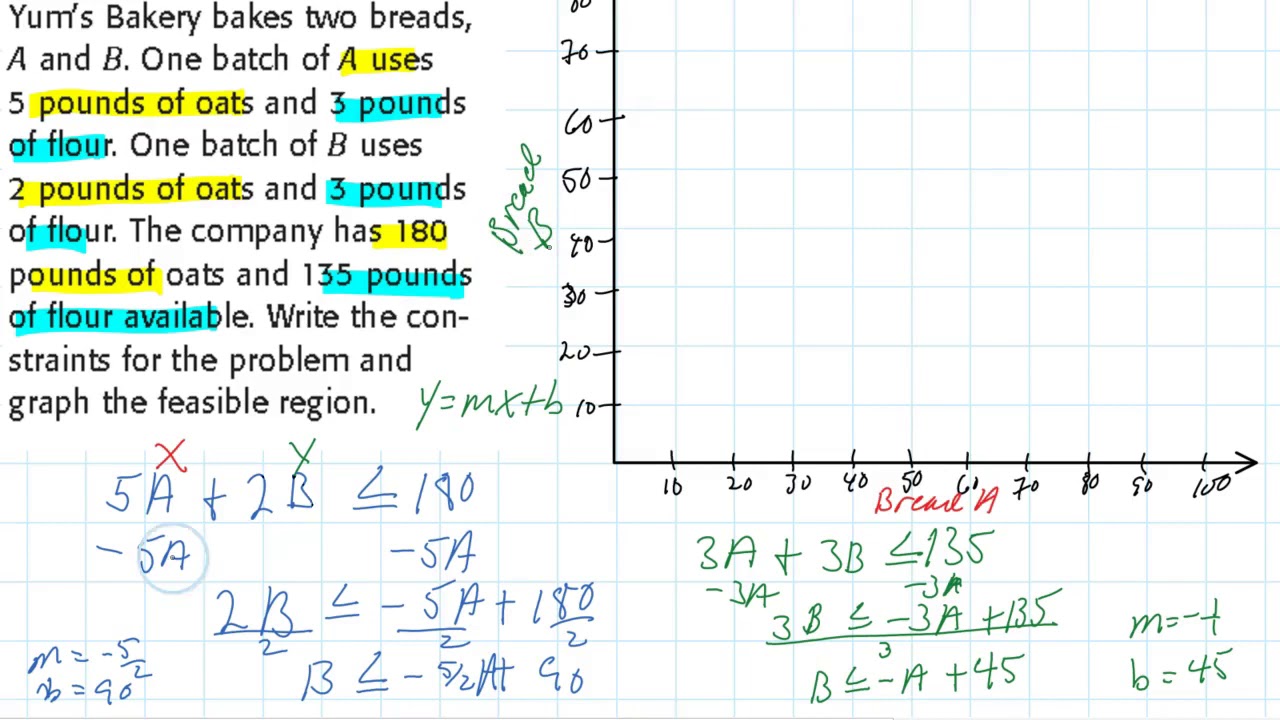 Yum's Bakery bakes two breads,
A and B. One batch of A uses
5 pounds of oats and 3 pounds
of flour. One batch of B uses
2 pounds of oats and 3 pounds
of flour. The company has 180
pounds of oats and 135 pounds
of flour available. Write the con-
straints for the problem and
graph the feasible region.
y=mx+b
X Y
5A + 2B ≤ 180
- 5A -5A
2B ≤ -5A + 180
2 2 2
B ≤ - 5/2A + 90
m = -5/2
b = 90
80
70
60
50
40
30
20
10
Bread
B
10 20 30 40 50 60 70 80 90 100
Bread A
3A + 3B ≤ 135
-3A -3A
3B ≤ -3A +135
3
B ≤ -A + 45
m = -1
b = 45